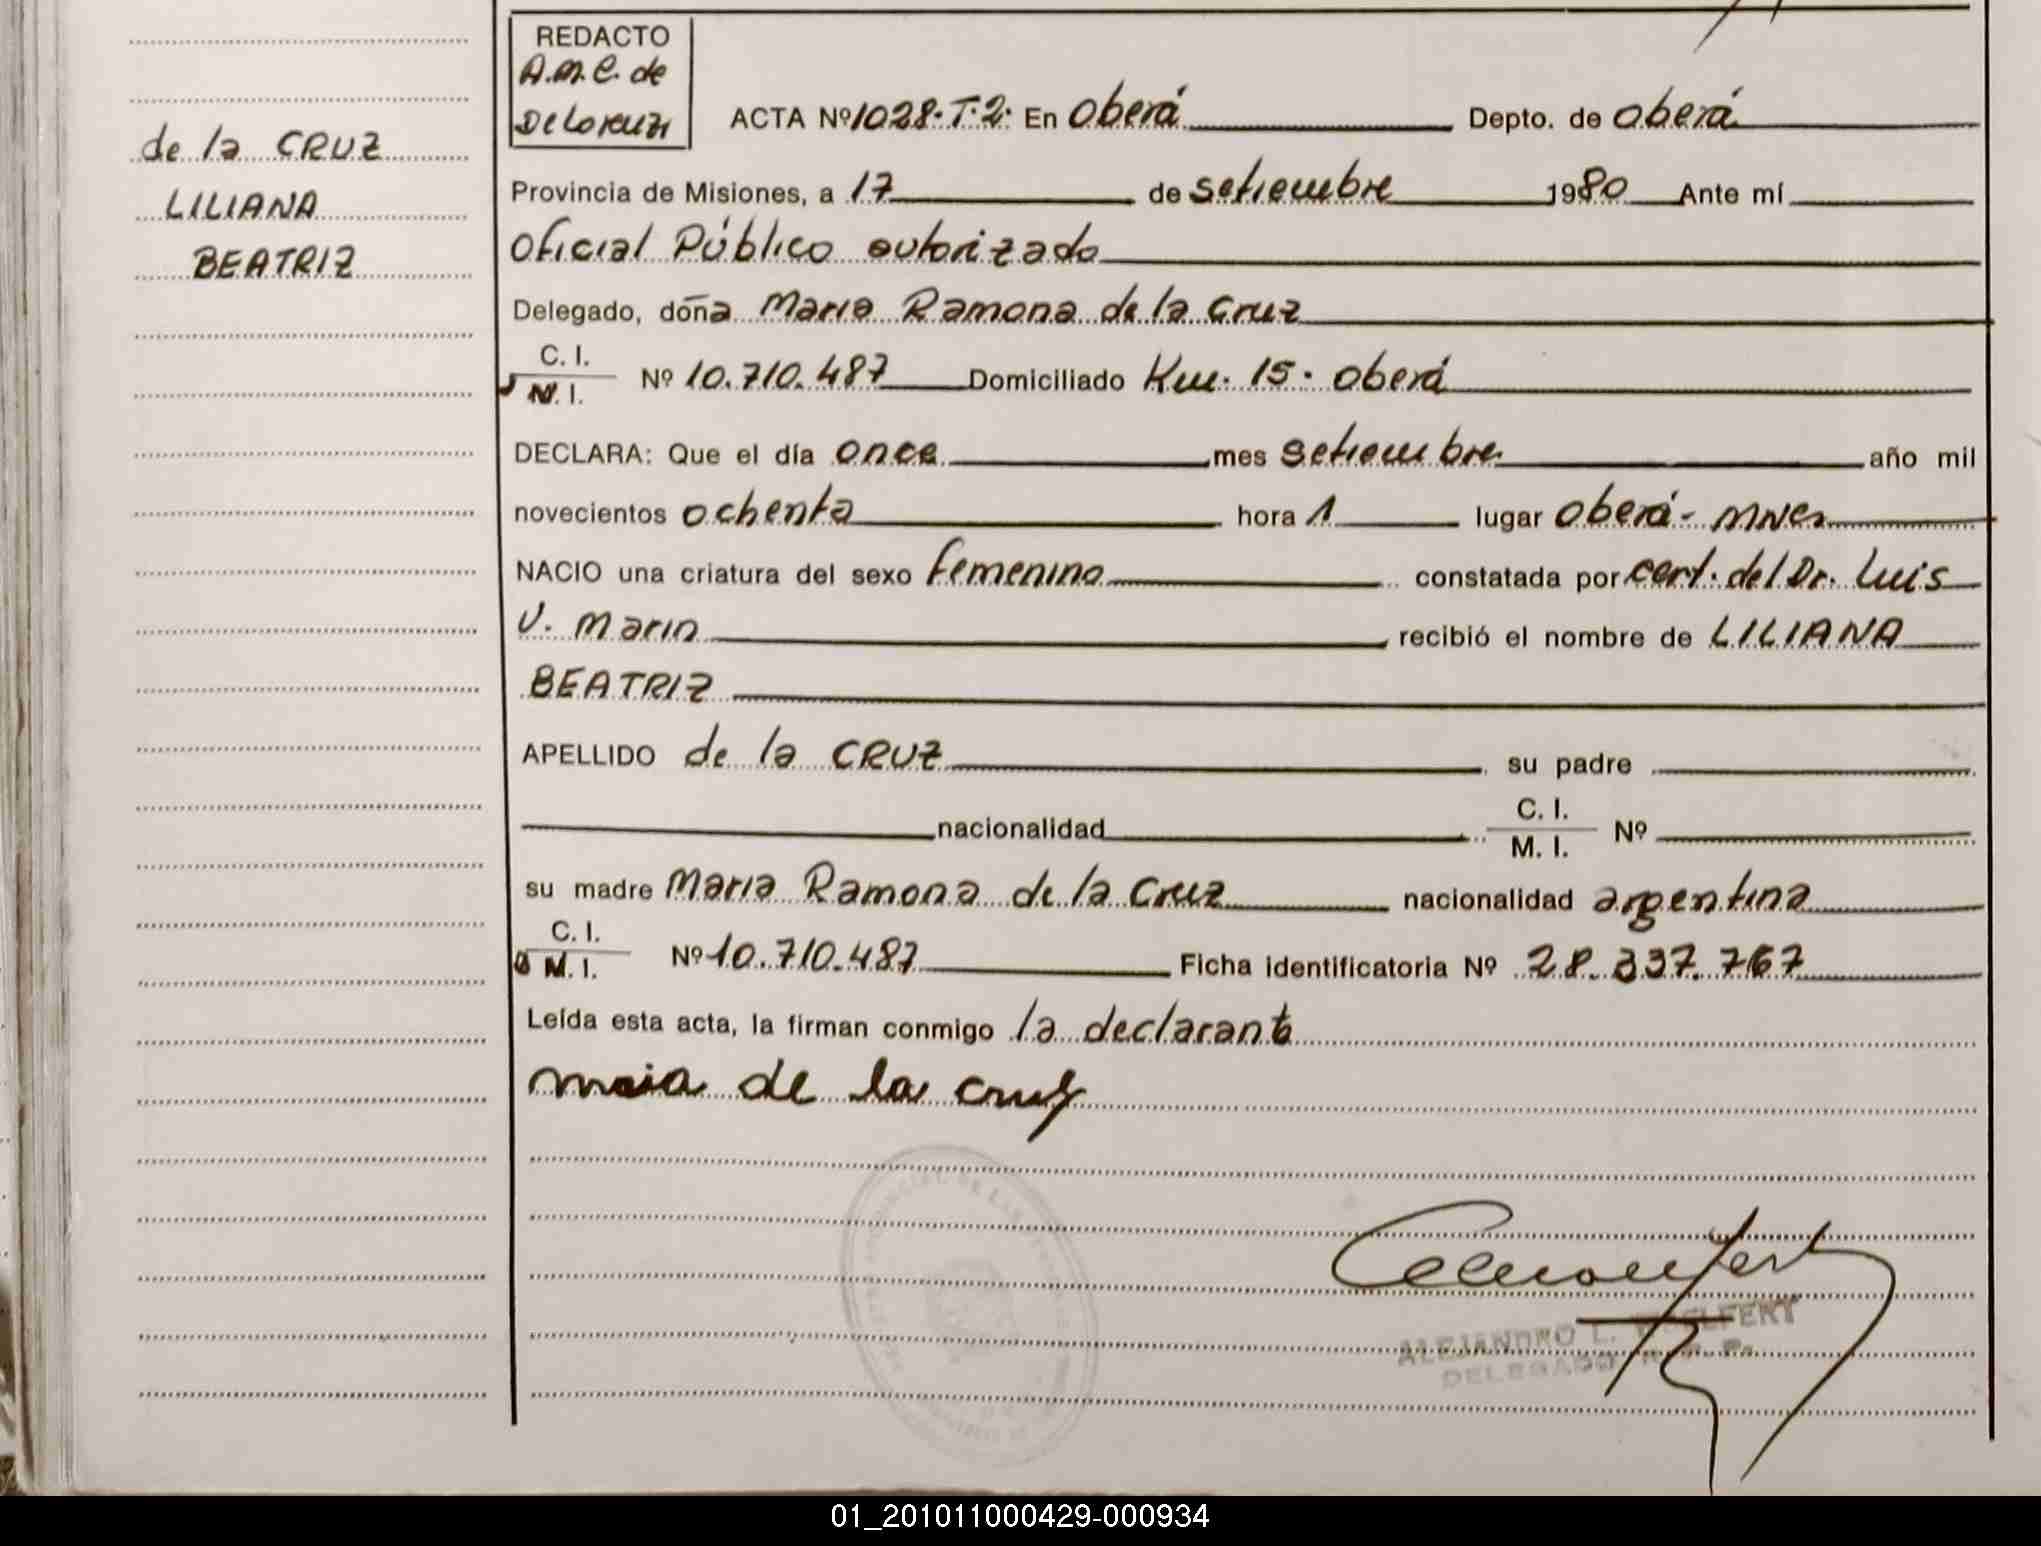 de la CRUZ
LILIANA
BEATRIZ
REDACTO
A.M.C. de
De Lorenzi
ACTA Nº 1028. T. 2. En Oberá Depto. de Oberá
Provincia de Misiones, a 17 de setiembre 1980 Ante mí
Oficial Público autorizado
Delegado, doña Maria Ramona de la Cruz
C. I.
M. I. Nº 10.710.487 Domiciliado Km. 15. Oberá
DECLARA: Que el día once mes setiembre año mil
novecientos ochenta hora 1 lugar Oberá - Mnes
NACIO una criatura del sexo femenino constatada por cert. del Dr. Luis
V. Marin recibió el nombre de LILIANA
BEATRIZ
APELLIDO de la CRUZ su padre
nacionalidad C. I.
M. I. Nº
su madre Maria Ramona de la Cruz nacionalidad argentina
C. I.
M. I. Nº 10.710.487 Ficha identificatoria Nº 28.337.767
Leída esta acta, la firman conmigo la declarante
maia de la cruz
ALEJANDRO L.
DELEGADO
01_201011000429-000934